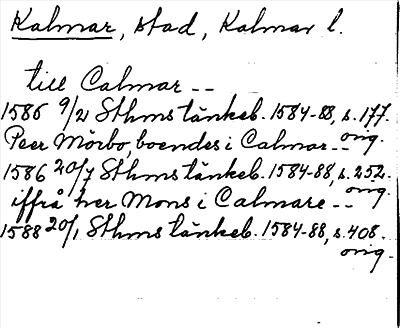 Kalmar, stad, Kalmar l.
till Calmar --
1585 9/21 Sthms tänkeb. 1584-88, s. 177.
orig.
Peer Mörbo, boendes i Calmar --
1586 20/7 Sthms tänkeb. 1584-88, s. 252.
orig.
iffrå her Mons i Calmare --
1588 20/1 Sthms tänkeb. 1584-88, s. 408.
orig.